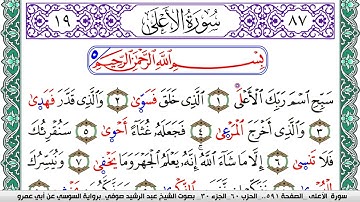 ٨٧ سُورَةُ الْأَعْلَى ١٩
بِسْمِ اللَّهِ الرَّحْمَٰنِ الرَّحِيمِ
سَبِّحِ اسْمَ رَبِّكَ الْأَعْلَى ١ الَّذِي خَلَقَ فَسَوَّىٰ ٢ وَالَّذِي قَدَّرَ فَهَدَىٰ
٣ وَالَّذِي أَخْرَجَ الْمَرْعَىٰ ٤ فَجَعَلَهُ غُثَاءً أَحْوَىٰ ٥ سَنُقْرِئُكَ
فَلَا تَنْسَىٰ ٦ إِلَّا مَا شَاءَ اللَّهُ إِنَّهُ يَعْلَمُ الْجَهْرَ وَمَا يَخْفَىٰ ٧ وَنُيَسِّرُكَ
سورة الأعلى . الصفحة ٥٩١. الحزب ٦٠ الجزء ٣٠ . بصوت الشيخ عبد الرشيد صوفي برواية السوسي عن أبي عمرو